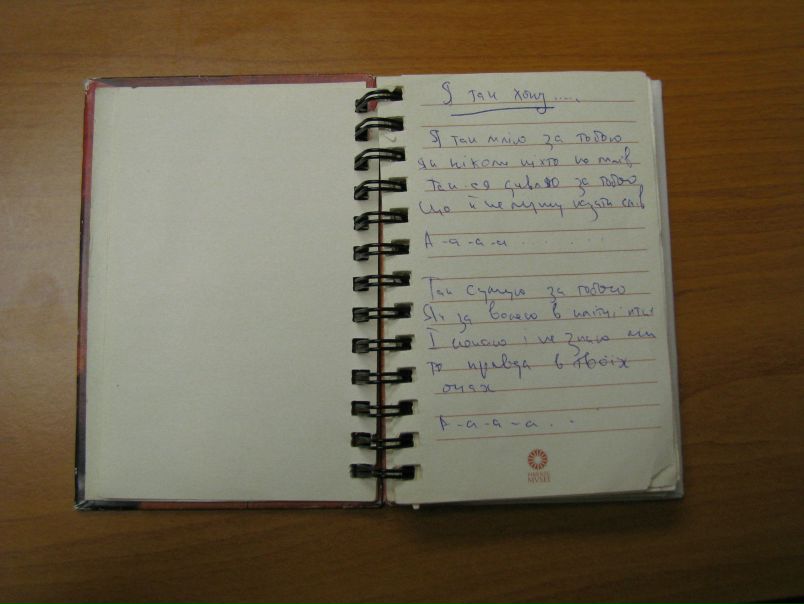 Я так хочу.....
Я так млію за тобою
Як ніколи ніхто не млів
Так ся дивлю за тобою
Що й не мушу казати слів
А-а-а-а . . . . . .
Так сумую за тобою
Як за волею в клітці птах
І кохаю і не знаю чи
то правда в твоїх
очах
А-а-а-а . .
FIRENZE
MVSEI